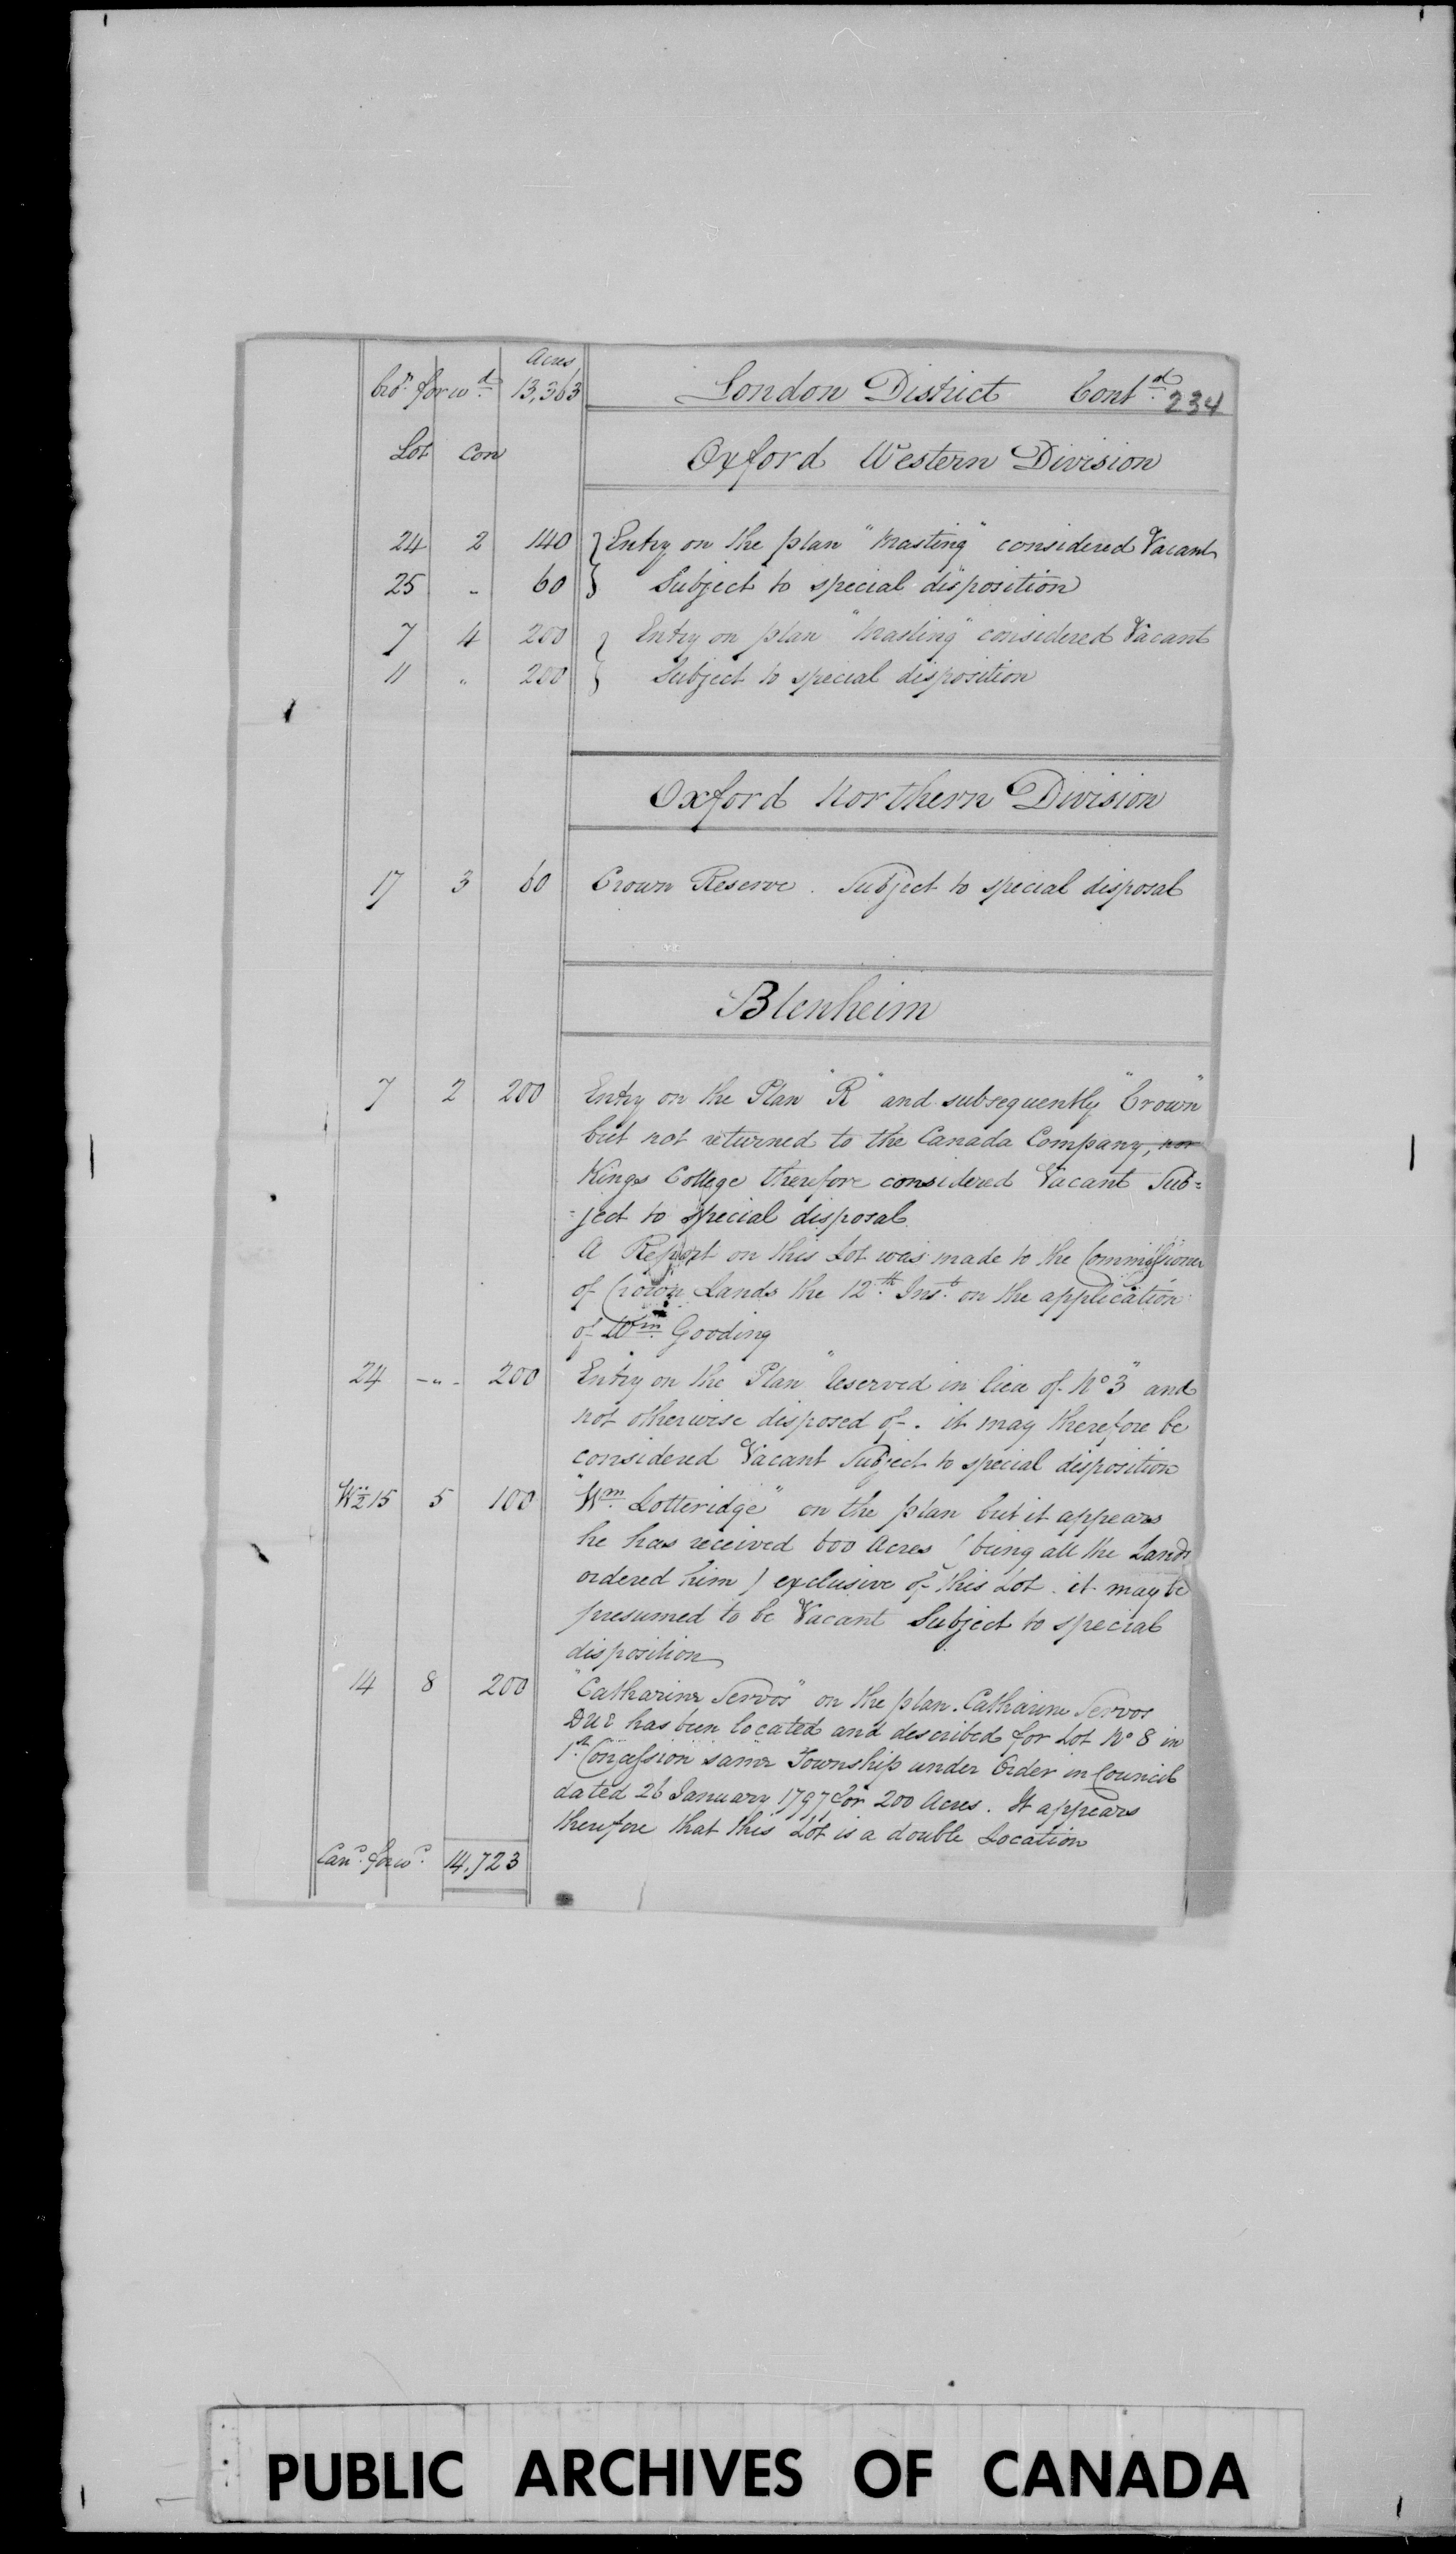 Acres
Bro.t forw.d 13,363 London District Cont.d 234
Lot Con
Oxford Western Division
24 2 140 } Entry on the plan "Masting" considered Vacant
25 " 60 } Subject to special disposition
7 4 200 } Entry on plan "Masting" considered Vacant
11 " 200 } Subject to special disposition
Oxford Northern Division
17 3 60 Crown Reserve. Subject to special disposal
Blenheim
7 2 200 Entry on the Plan "R" and subsequently "Crown"
but not returned to the Canada Company, nor
Kings College therefore considered Vacant Sub=
=ject to special disposal.
A Report on this Lot was made to the Commissioner
of Crown Lands the 12.th Ins.t on the application
of Wm. Gooding
24 -"- 200 Entry on the Plan "Reserved in lieu of No 3" and
not otherwise disposed of. it may therefore be
considered Vacant Subject to special disposition
W½ 15 5 100 "Wm. Lotteridge" on the plan but it appears
he has received 600 Acres (being all the Lands
ordered him) exclusive of this Lot. it may be
presumed to be Vacant Subject to special
disposition
14 8 200 "Catharine Servos" on the plan. Catharine Servos
DUE has been located and described for Lot No 8 in
1.st Concession same Township under Order in Council
dated 26 January 1797 for 200 Acres. It appears
therefore that this Lot is a double Location
Car.d forw.d 14,723
PUBLIC ARCHIVES OF CANADA